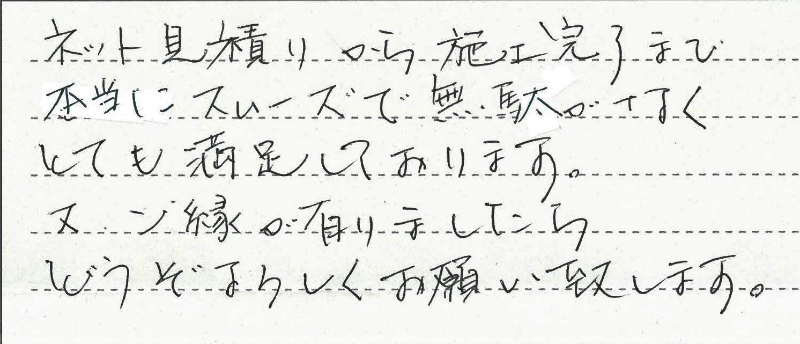 ネット見積りから施工完了まで
本当にスムーズで無駄がなく
とても満足しております。
又ご縁が有りましたら
どうぞよろしくお願い致します。